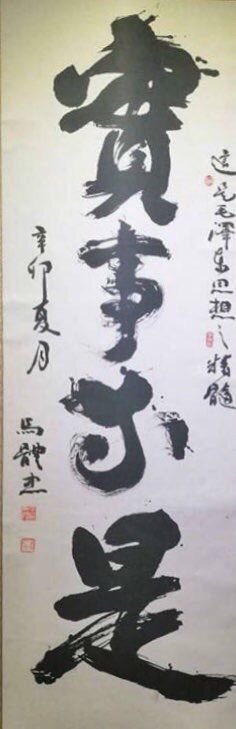 實事求是
這是毛澤東思想之精髓
辛卯夏月
馬體杰